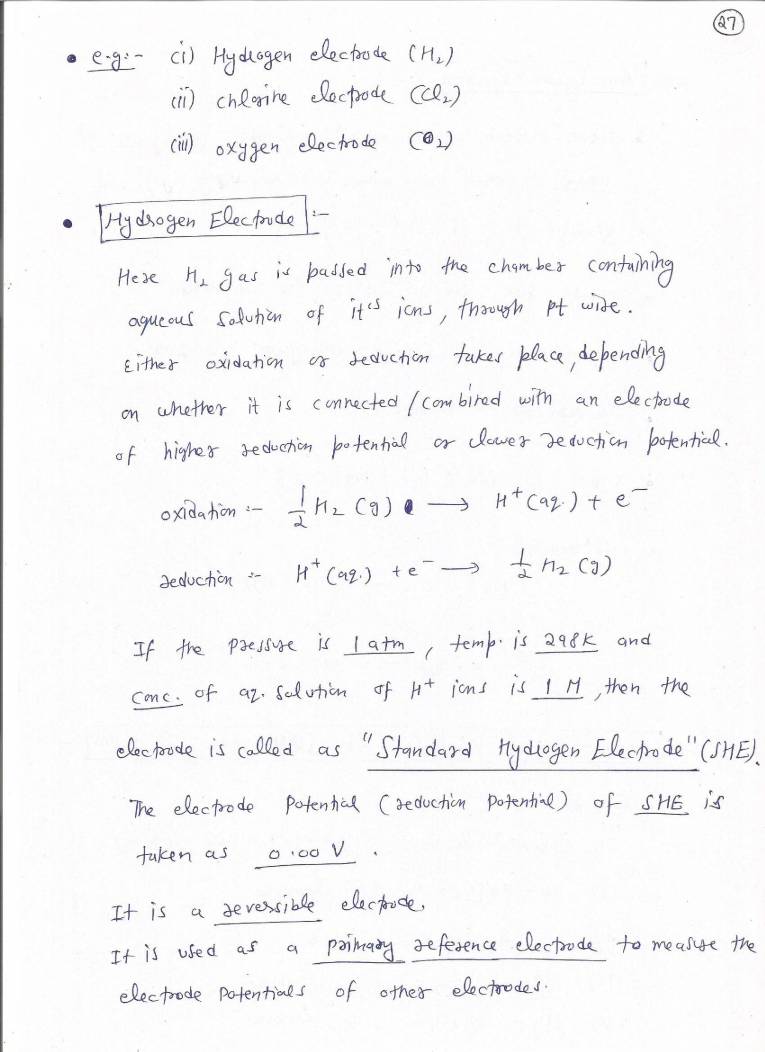 27
• e.g:- (i) Hydrogen electrode (H₂)
(ii) chlorine electrode (Cl₂)
(iii) oxygen electrode (O₂)
• Hydrogen Electrode :-
Here H₂ gas is passed into the chamber containing
aqueous solution of it's ions, through pt wire.
Either oxidation or reduction takes place, depending
on whether it is connected / combined with an electrode
of higher reduction potential or lower reduction potential.
oxidation :- 1/2 H₂ (g) ⟶ H⁺ (aq.) + e⁻
reduction :- H⁺ (aq.) + e⁻ ⟶ 1/2 H₂ (g)
If the pressure is 1 atm, temp. is 298K and
conc. of aq. solution of H⁺ ions is 1 M, then the
electrode is called as "Standard Hydrogen Electrode" (SHE).
The electrode potential (reduction potential) of SHE is
taken as 0.00 V.
It is a reversible electrode.
It is used as a primary reference electrode to measure the
electrode potentials of other electrodes.